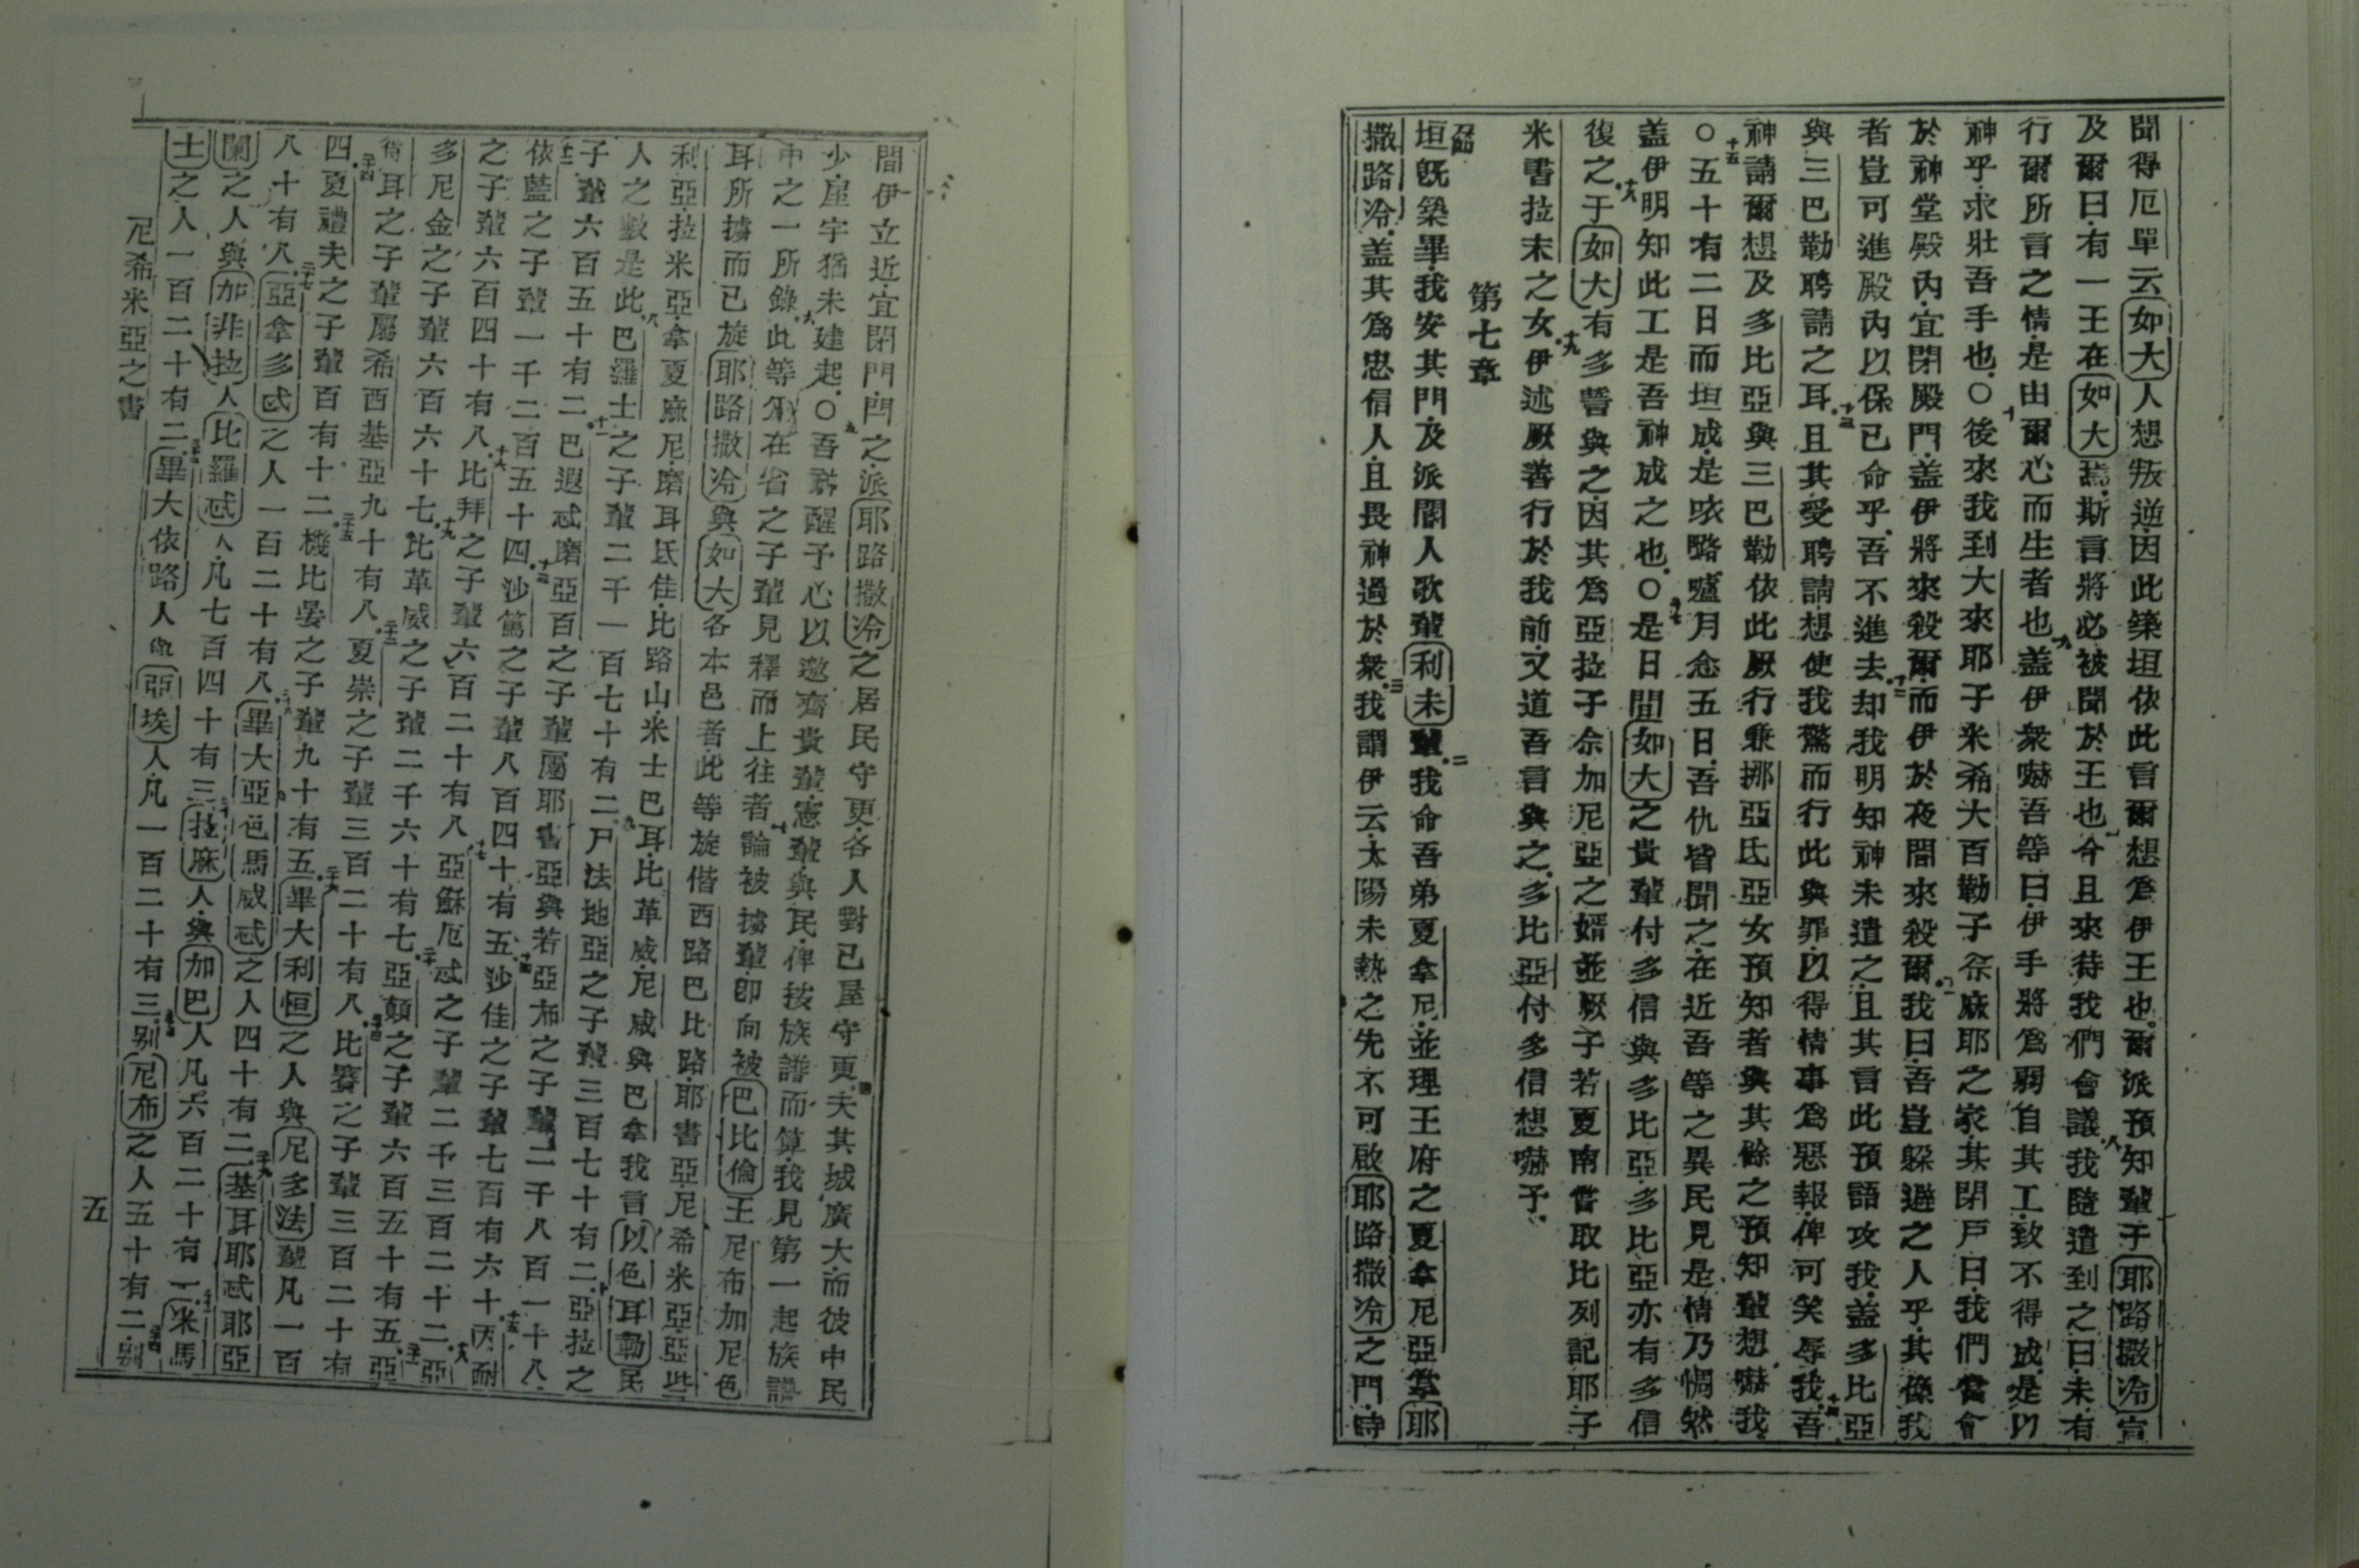 聞得厄單云如大人想叛逆因此築垣依此言爾想為伊王也爾派預知輩于耶路撒冷宣
及爾曰有一王在如大焉斯言將必被聞於王也今且來待我們會議我隨遣到之曰未有
行爾所言之情是由爾心而生者也蓋伊衆嚇吾等曰伊手將為弱自其工致不得成是以
神乎求壯吾手也○後來我到大來耶子米希大百勒子 麻耶之家其閉戶曰我們當會
於神堂殿內宜閉殿門蓋伊將來殺爾而伊於夜間來殺爾我曰吾豈躲避之人乎其像我
者豈可進殿內以保己命乎吾不進去却我明知神未遣之且其言此預語攻我蓋多比亞
與三巴勒聘請之耳且其受聘請想使我驚而行此與罪以得情事為惡報俾可笑辱我吾
神請爾想及多比亞與三巴勒依此厥行兼挪亞氐亞女預知者與其餘之預知輩想嚇我
○五十有二日而垣成是 路嚧月念五日吾仇皆聞之在近吾等之異民見是情乃惆然
蓋伊明知此工是吾神成之也○是日間如大之貴輩付多信與多比亞多比亞亦有多信
復之于如大有多誓與之因其為亞拉子 加尼亞之婿並厥子若夏南嘗取比列記耶子
米書拉末之女伊述厥善行於我前又道吾言與之多比亞付多信想嚇予
第七章
垣既築畢我安其門及派閽人歌輩利未輩我命吾弟夏拿尼並理王府之夏拿尼亞掌耶
撒路冷蓋其為忠信人且畏神過於衆我謂伊云太陽未熱之先不可啟耶路撒冷之門時
間伊立近宜閉門門之派耶路撒冷之居民守更各人對己屋守更夫其城廣大而彼中民
少屋宇猶未建起○吾神醒予心以邀齊貴輩憲輩與民俾按族譜而算我見第一起族譜
中之一所錄此等 在省之子輩見釋而上往者論被擄輩即向被巴比倫王尼布加尼色
耳所擄而已旋耶路撒冷與如大各本邑者此等旋偕西路巴比路耶書亞尼希米亞亞些
利亞拉米亞拿夏麻尼磨耳氐佳比路山米士巴耳比革威尼威與巴拿我言以色耳勒民
人之數是此巴羅士之子輩二千一百七十有二尸法地亞之子輩三百七十有二亞拉之
子輩六百五十有二巴遐忒磨亞百之子輩屬耶書亞與若亞布之子輩二千八百一十八
依藍之子輩一千二百五十四沙篤之子輩八百四十有五沙佳之子輩七百有六十丙耐
之子輩六百四十有八比拜之子輩六百二十有八亞穌厄忒之子輩二千三百二十二亞
多尼金之子輩六百六十七比革威之子輩二千六十有七亞顛之子輩六百五十有五亞
得耳之子輩屬希西基亞九十有八夏崇之子輩三百二十有八比賽之子輩三百二十有
四夏禮夫之子輩百有十二機比晏之子輩九十有五畢大利恒之人與尼多法輩凡一百
八十有八亞拿多忒之人一百二十有八畢大亞色馬威忒之人四十有二基耳耶忒耶亞
闌之人與加非拉人比羅忒人凡七百四十有三拉麻人與加巴人凡六百二十有一米馬
士之人一百二十有二畢大依路人與亞埃人凡一百二十有三别尼布之人五十有二别
尼希米亞之書
五